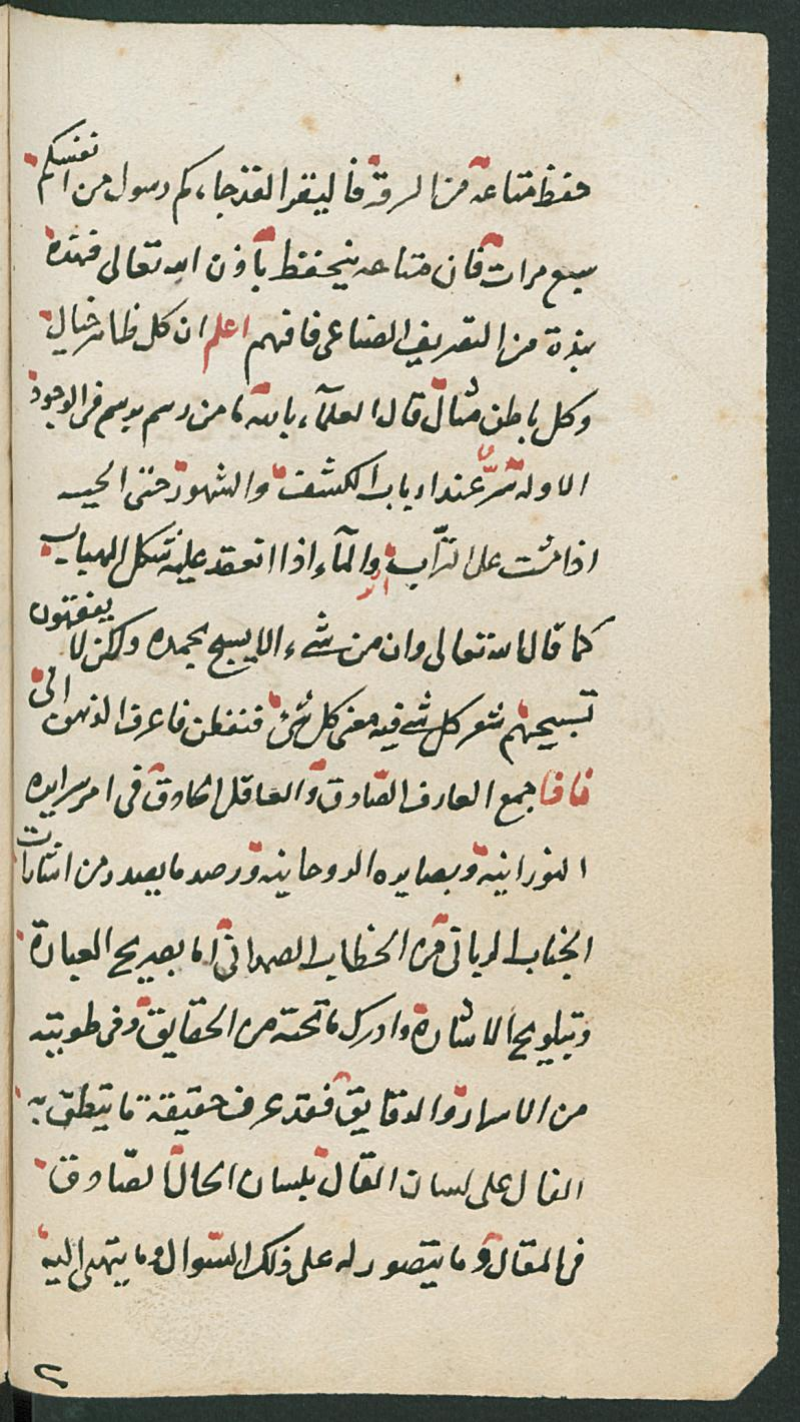 حفظ متاعه من السرقة فاليقرا لقد جاءكم رسول من انفسكم
سبع مرات فان متاعه ينحفظ باذن الله تعالى فهذه
نبذة من التصريف الصناعى فافهم اعلم ان كل ظاهر خيال
وكل باطن مثال قال العلمآء بالله ما من رسم يرسم فى الوجود
الا وله سرّ عند ارباب الكشف والشهود حتى الحيه
اذا مشت على التراب والمآء اذا انعقد عليه شكل الهباب
كما قال الله تعالى وان من شىء الا يسبح بحمده ولكن لا يفقهون
تسبيحهم شعر كل شى فيه معنى كل شئ فتفطن فاعرف الذهن الىّ
فاذا جمع العارف الصادق والعاقل الحاذق فى امر سرايره
النورانيه وبصايره الروحانيه ورصد ما يصدر من اشارات
الجناب الربانى من الخطاب الصمدانى اما بصريح العبارة
وتبلويح الاشارة وادرك ما تحته من الحقايق وفى طويته
من الاسرار والدقايق فقد عرف حقيقة ما ينطق به
الفال على لسان القال بلسان الحال الصادق
فى المقال وما يتصور له على ذلك السوال وما ينتهى اليه